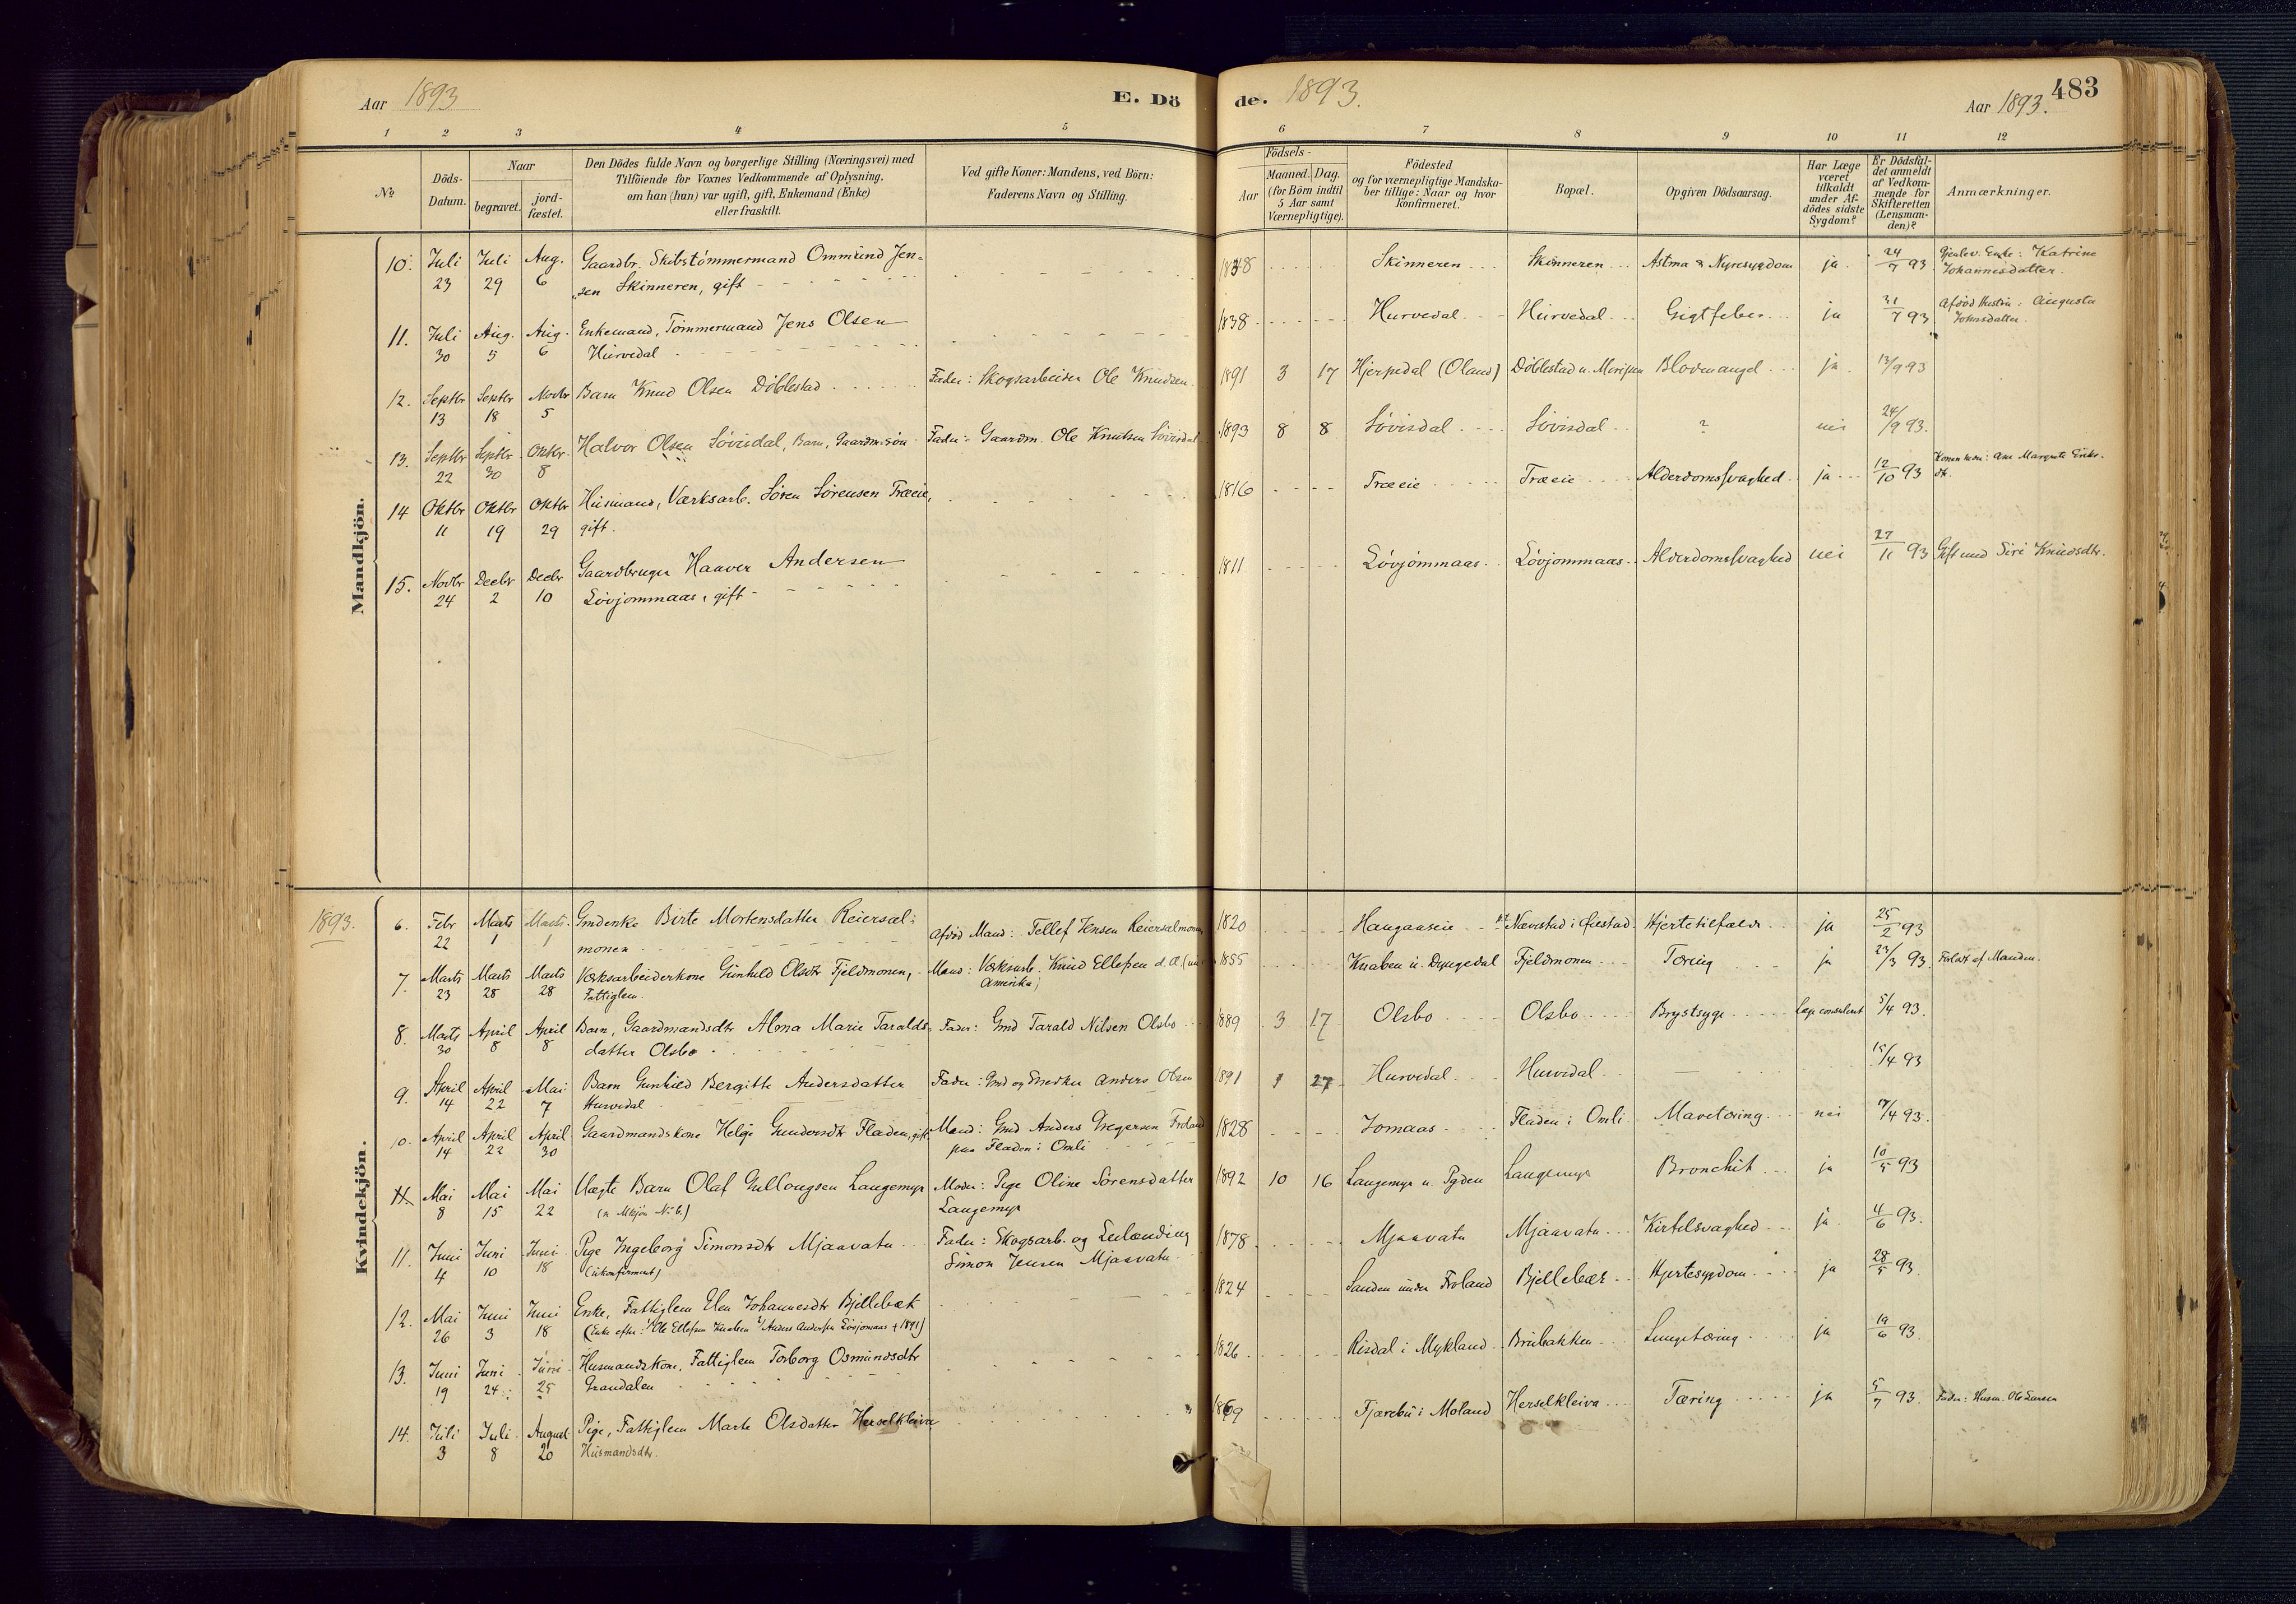 Aar 1893
E. Dö
de. 1893.
Aar 1893. 483
1 2 3 4 5 6 7 8 9 10 11 12
No
Döds-
Datum.
Naar
begravet.
jord-
fæstet.
Den Dödes fulde Navn og borgerlige Stilling (Næringsvei) med
Tilföiende for Voxnes Vedkommende af Oplysning,
om han (hun) var ugift, gift, Enkemand (Enke)
eller fraskilt.
Ved gifte Koner: Mandens, ved Börn:
Faderens Navn og Stilling.
Födsels-
Aar
Maaned. Dag.
(for Börn indtil
5 Aar samt
Værnepligtige).
Födested
og for værnepligtige Mandska-
ber tillige: Naar og hvor
konfirmeret.
Bopæl.
Opgiven Dödsaarsag.
Har Læge
været
tilkaldt
under Af-
dödes sidste
Sygdom?
Er Dödsfal-
det anmeldt
af Vedkom-
mende for
Skifteretten
(Lensman-
den)?
Anmærkninger.
Mandkjön.
10. Juli Juli Aug. Gaardbr. Skibstømmermand Ommund Jen- Skinneren Skinneren Astma & Nyresygdom ja 24/7 93 Gjenlev. Enke: Katrine
23 29 6 sen Skinneren, gift Johannesdatter.
11. Juli Aug. Aug. Enkemand, Tømmermand Jens Olsen 1838 Hurvedal Hurvedal Gigtfeber ja 31/7 93 Afdød Hustru: Augusta
30 5 6 Hurvedal Johnsdatter.
12. Septbr Septbr Novbr Barn Knud Olsen Döblestad Fader: Skogsarbeider Ole Knudsen 1891 3 17 Hjerpedal (Oland) Döblestad u. Blodmangel ja 13/9 93
13 18 5
13. Septbr Septbr Oktbr Halvor Olsen Lövisdal, Barn, Gaardm.søn Fader: Gaardm. Ole Knutsen Lövisdal 1893 8 8 Lövisdal Lövisdal ? nei 24/9 93.
22 30 8
14 Oktbr Oktbr Oktbr Husmand, Værksarb. Sören Sörensen Træeie, 1816 Træeie Træeie Alderdomssvaghed ja 12/10 93
11 19 29 gift.
15. Novbr Decbr Decbr Gaardbruger Haaver Andersen 1811 Lövjommaas Lövjommaas Alderdomssvaghed nei 27/11 93 Gift med Siri Knudsdtr.
24 2 10 Lövjommaas, gift
1893.
Kvindekjön.
6. Febr Marts Marts Gmdenke Birte Mortensdatter Reiersøl- Afdød Mand: Tellef Jensen Reiersølmonen 1820 Haugaaseie Nævestad i Hjertetilfælde ja 25/2 93
22 1 1 monen
7. Marts Marts Marts Værksarbeiderkone Gunhild Olsdtr Fjeldmonen, Mand: Værksarb. Knud Ellefsen 1855 Knaben u. Dyngedal Fjeldmonen Tæring ja 23/3 93. Forladt af Manden.
23 28 28 Fattiglem. Amerika)
8. Marts April April Barn, Gaardmandsdtr Alma Marie Taralds- Fader: Gmd Tarald Nilsen Olsbo 1889 3 17 Olsbo Olsbo Brystsyge Læge consuleret 5/4 93.
30 8 8 datter Olsbo
9. April April Mai Barn Gunhild Bergitte Andersdatter Fader: Gmd og Snedker Anders Olsen 1891 1 27 Hurvedal Hurvedal — 15/4 93
14 22 7 Hurvedal
10. April April April Gaardmandskone Helge Gundersdtr Fladen, gift. Mand: Gmd Anders Gregersen Froland 1828 Jomaas Fladen i Omli Mavetæring nei 17/4 93.
14 22 30 paa Fladen i Omli
11 Mai Mai Mai Uægte Barn Olaf Gullougsen Langemyr Moder: Pige Oline Sörensdatter 1892 10 16 Langemyr Langemyr Bronchit ja 10/5 93
8 15 22 (se Mkjön No 6.) Langemyr
11. Juni Juni Juni Pige Ingeborg Simonsdtr Mjaavatn Fader: Skogsarb. og Leilænding 1878 Mjaavatn Mjaavatn Kirtelsvaghed ja 4/6 93.
4 10 18 (ukonfirmert) Simon Jensen Mjaavatn
12. Mai Juni Juni Enke, Fattiglem Elen Johannesdtr Bjellebæk 1824 Sanden under Froland Bjellebæk Hjertesygdom ja 28/5 93
26 3 18 (Enke efter: 1/ Ole Ellefsen Knaben 2/ Anders Andersen Lövjomaas + 1891)
13. Juni Juni Juni Husmandskone, Fattiglem Torborg Osmundsdtr 1826 Risdal i Mykland Brubakken Lungetæring ja 19/6 93.
19 24 25 Grandalen
14. Juli Juli August Pige, Fattiglem Marte Olsdatter Herselkleiva 1869 Tjærebu i Moland Herselkleiva Tæring ja 5/7 93. Fader: Husm. Ole Larsen
3 8 20 Husmandsdtr.